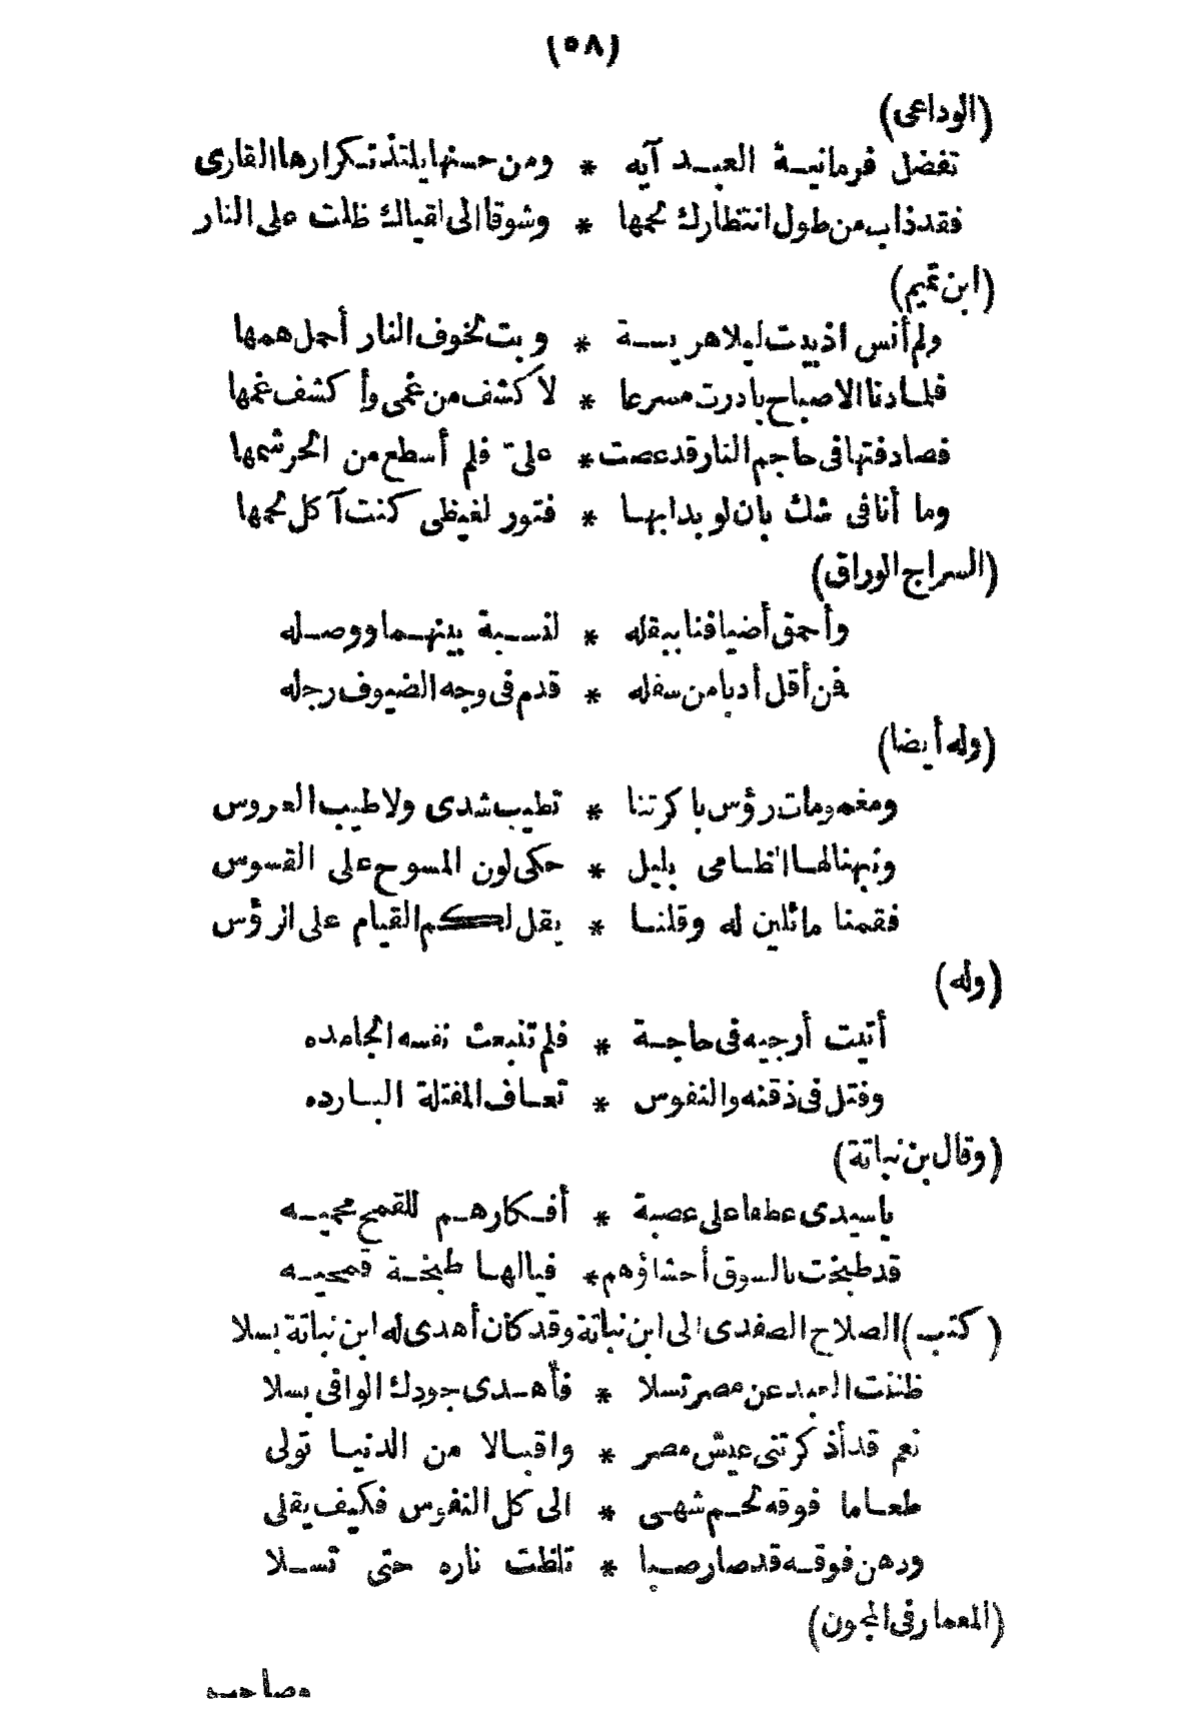 (٥٨)
(الوداعى)
تفضل فرمانية العبد آيه * ومن حسنها يلتذ تكرارها القارى
فقد ذاب من طول انتظارك لحمها * وشوقا الى اقبالك ظلت على النار
(ابن تميم)
ولم أنس اذ بيت ليلا هريسة * وبت لخوف النار أحمل همها
فلما دنا الاصباح بادرت مسرعا * لا كشف من غمى وأكشف غمها
فصادفتها فى حاجم النار قد عصت * على فلم أسطع من الحر شمها
وما أنا فى شك بان لو بدا بها * فتور لغيظى كنت آكل لحمها
(السراج الوراق)
وأحمق أضيافنا ببقله * لنسبة بينهما ووصله
فمن أقل أدبا من سفله * قدم فى وجه الضيوف رجله
(وله أيضا)
ومغمومات رؤس باكرتنا * تطيب شدى ولا طيب العروس
ونبهنا لها الظامى بليل * حكى لون المسوح على القسوس
فقمنا ماثلين له وقلنا * يقل لكم القيام على الرؤس
(وله)
أتيت أرجيه فى حاجة * فلم تنبعث نفسه الجامده
وفتل فى ذقنه والنفوس * تعاف المفتلة البارده
(وقال بن نباتة)
ياسيدى عطفا على عصبة * أفكارهم للقمح محميه
قد طبخت بالسوق أحشاؤهم * فيالها طبخة قمحيه
(كتب) الصلاح الصفدى الى ابن نباتة وقد كان أهدى له ابن نباتة بسلا
ظننت العبد عن مصر تسلا * فأهدى جودك الوافى بسلا
نعم قد أذكرتنى عيش مصر * واقبالا من الدنيا تولى
طعاما فوقه لحم شهى * الى كل النفوس فكيف يقلى
ودهن فوقه قد صار صبا * تلظت ناره حتى تسلا
(المعمار فى المجون)
وصاحب